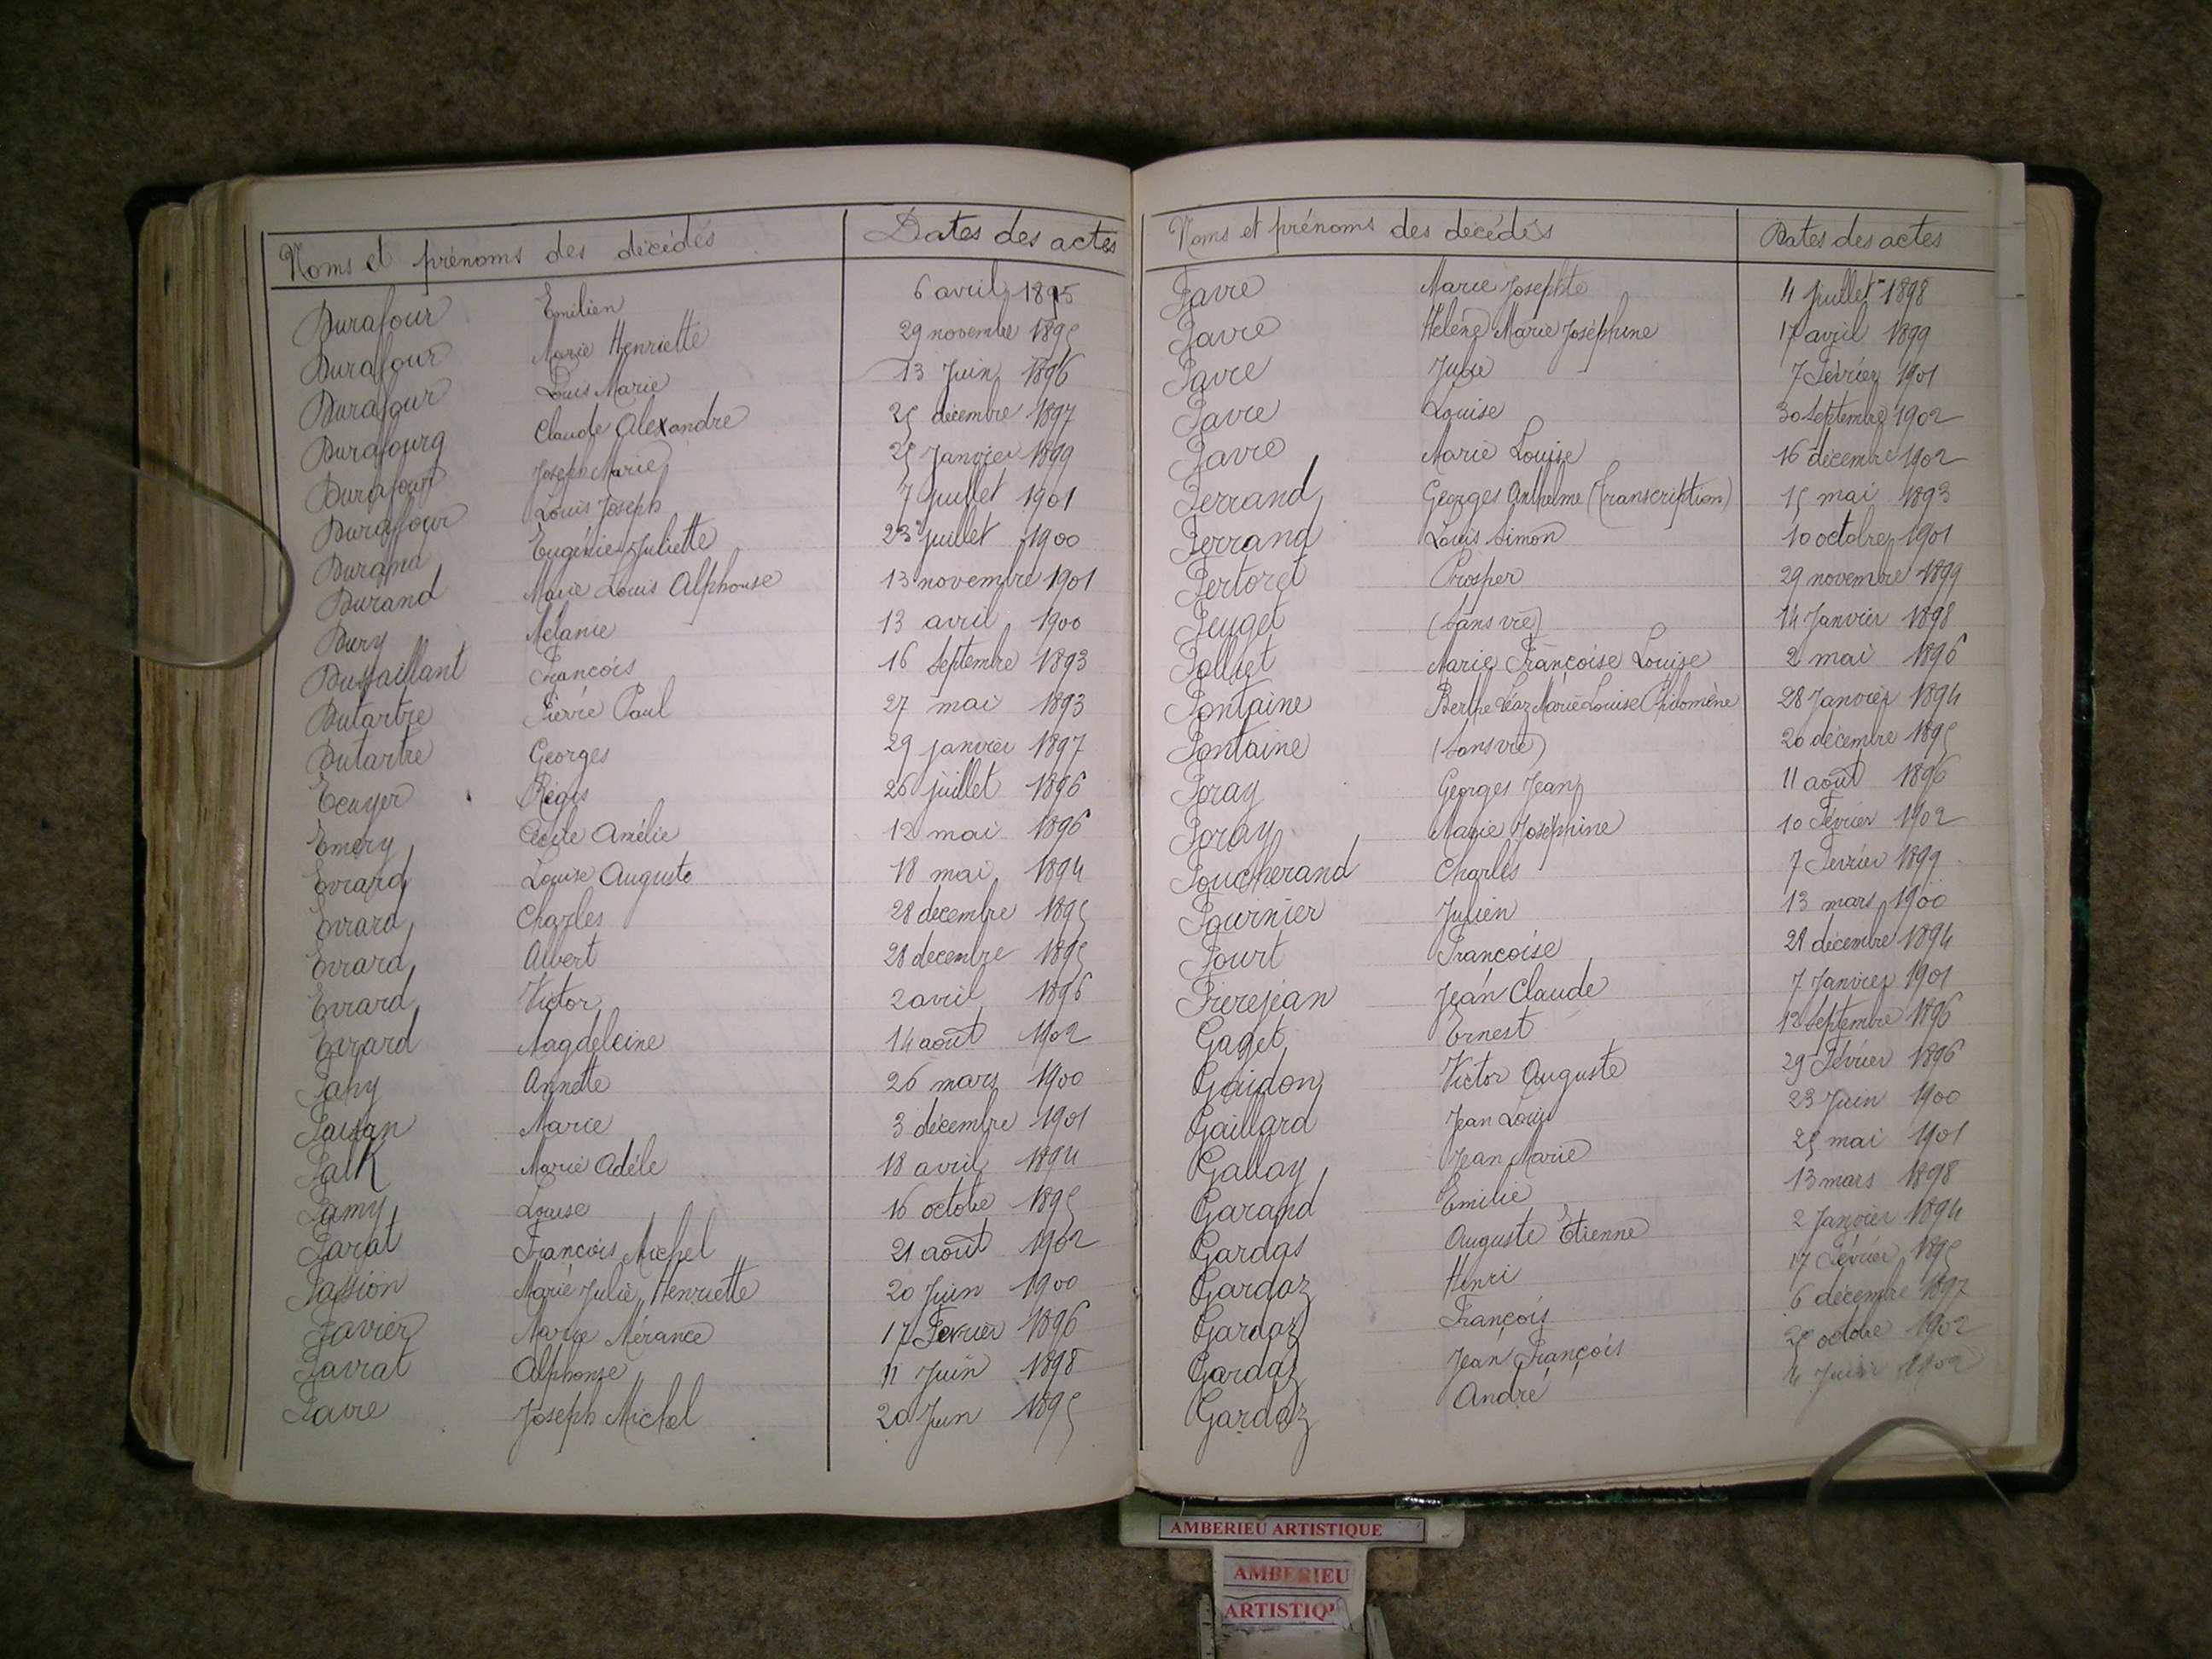 Noms et prénoms des décédés Dates des actes
Durafour Emilien 6 avril 1895
Durafour Marie Henriette 29 novembre 1895
Durafour Louis Marie 13 Juin 1896
Durafourg Claude Alexandre 25 décembre 1897
Durafour Joseph Marie 25 Janvier 1899
Durafour Louis Joseph 7 Juillet 1901
Durand Eugénie Juliette 23 juillet 1900
Durand Marie Louis Alphonse 13 novembre 1901
Dury Mélanie 13 avril 1900
Dussaillant François 16 Septembre 1893
Dutartre Pierre Paul 27 mai 1893
Dutartre Georges 29 janvier 1897
Ecuyer Régis 26 juillet 1896
Emery Cécile Amélie 12 mai 1896
Evrard Louise Auguste 18 mai 1894
Evrard Charles 28 decembre 1895
Evrard Albert 28 decembre 1895
Evrard Victor 2 avril 1896
Evrard Magdeleine 14 août 1902
Fahy Annette 26 mars 1900
Faisan Marie 3 décembre 1901
Falk Marie Adéle 18 avril 1894
Famy Louise 16 octobre 1895
Farat François Michel 21 août 1902
Fassion Marie Julie Henriette 20 Juin 1900
Favier Marie Mérance 17 Fevrier 1896
Favrat Alphonse 11 Juin 1898
Favre Joseph Michel 20 Juin 1895
Noms et prénoms des décédés Dates des actes
Favre Marie Josephte 4 Juillet 1898
Favre Hélène Marie Joséphine 17 avril 1899
Favre Julie 7 Février 1901
Favre Louise 30 Septembre 1902
Favre Marie Louise 16 décembre 1902
Ferrand Georges Anthelme (Transcription) 15 mai 1893
Ferrand Louis Simon 10 octobre 1901
Fertoret Prosper 29 novembre 1899
Feuget (Sans vie) 14 Janvier 1898
Folliet Marie Françoise Louise 2 mai 1896
Fontaine Berthe Léaz Marie Louise Philomène 28 Janvier 1894
Fontaine (Sans vie) 20 décembre 1895
Foray Georges Jean 11 août 1896
Foray Marie Joséphine 10 Février 1902
Foucherand Charles 7 Fevrier 1899
Fournier Julien 13 mars 1900
Fourt Françoise 28 décembre 1894
Frerejean Jean Claude 7 Janvier 1901
Gaget Ernest 12 Septembre 1896
Gaidon Victor Auguste 29 Février 1896
Gaillard Jean Louis 23 Juin 1900
Gallay Jean Marie 25 mai 1901
Garand Emilie 13 mars 1898
Gardas Auguste Etienne 2 Janvier 1894
Gardaz Henri 17 Février 1895
Gardaz François 6 décembre 1897
Gardaz Jean François octobre 1902
Gardaz André Juin 1902
AMBERIEU ARTISTIQUE
AMBERIEU
ARTISTIQU